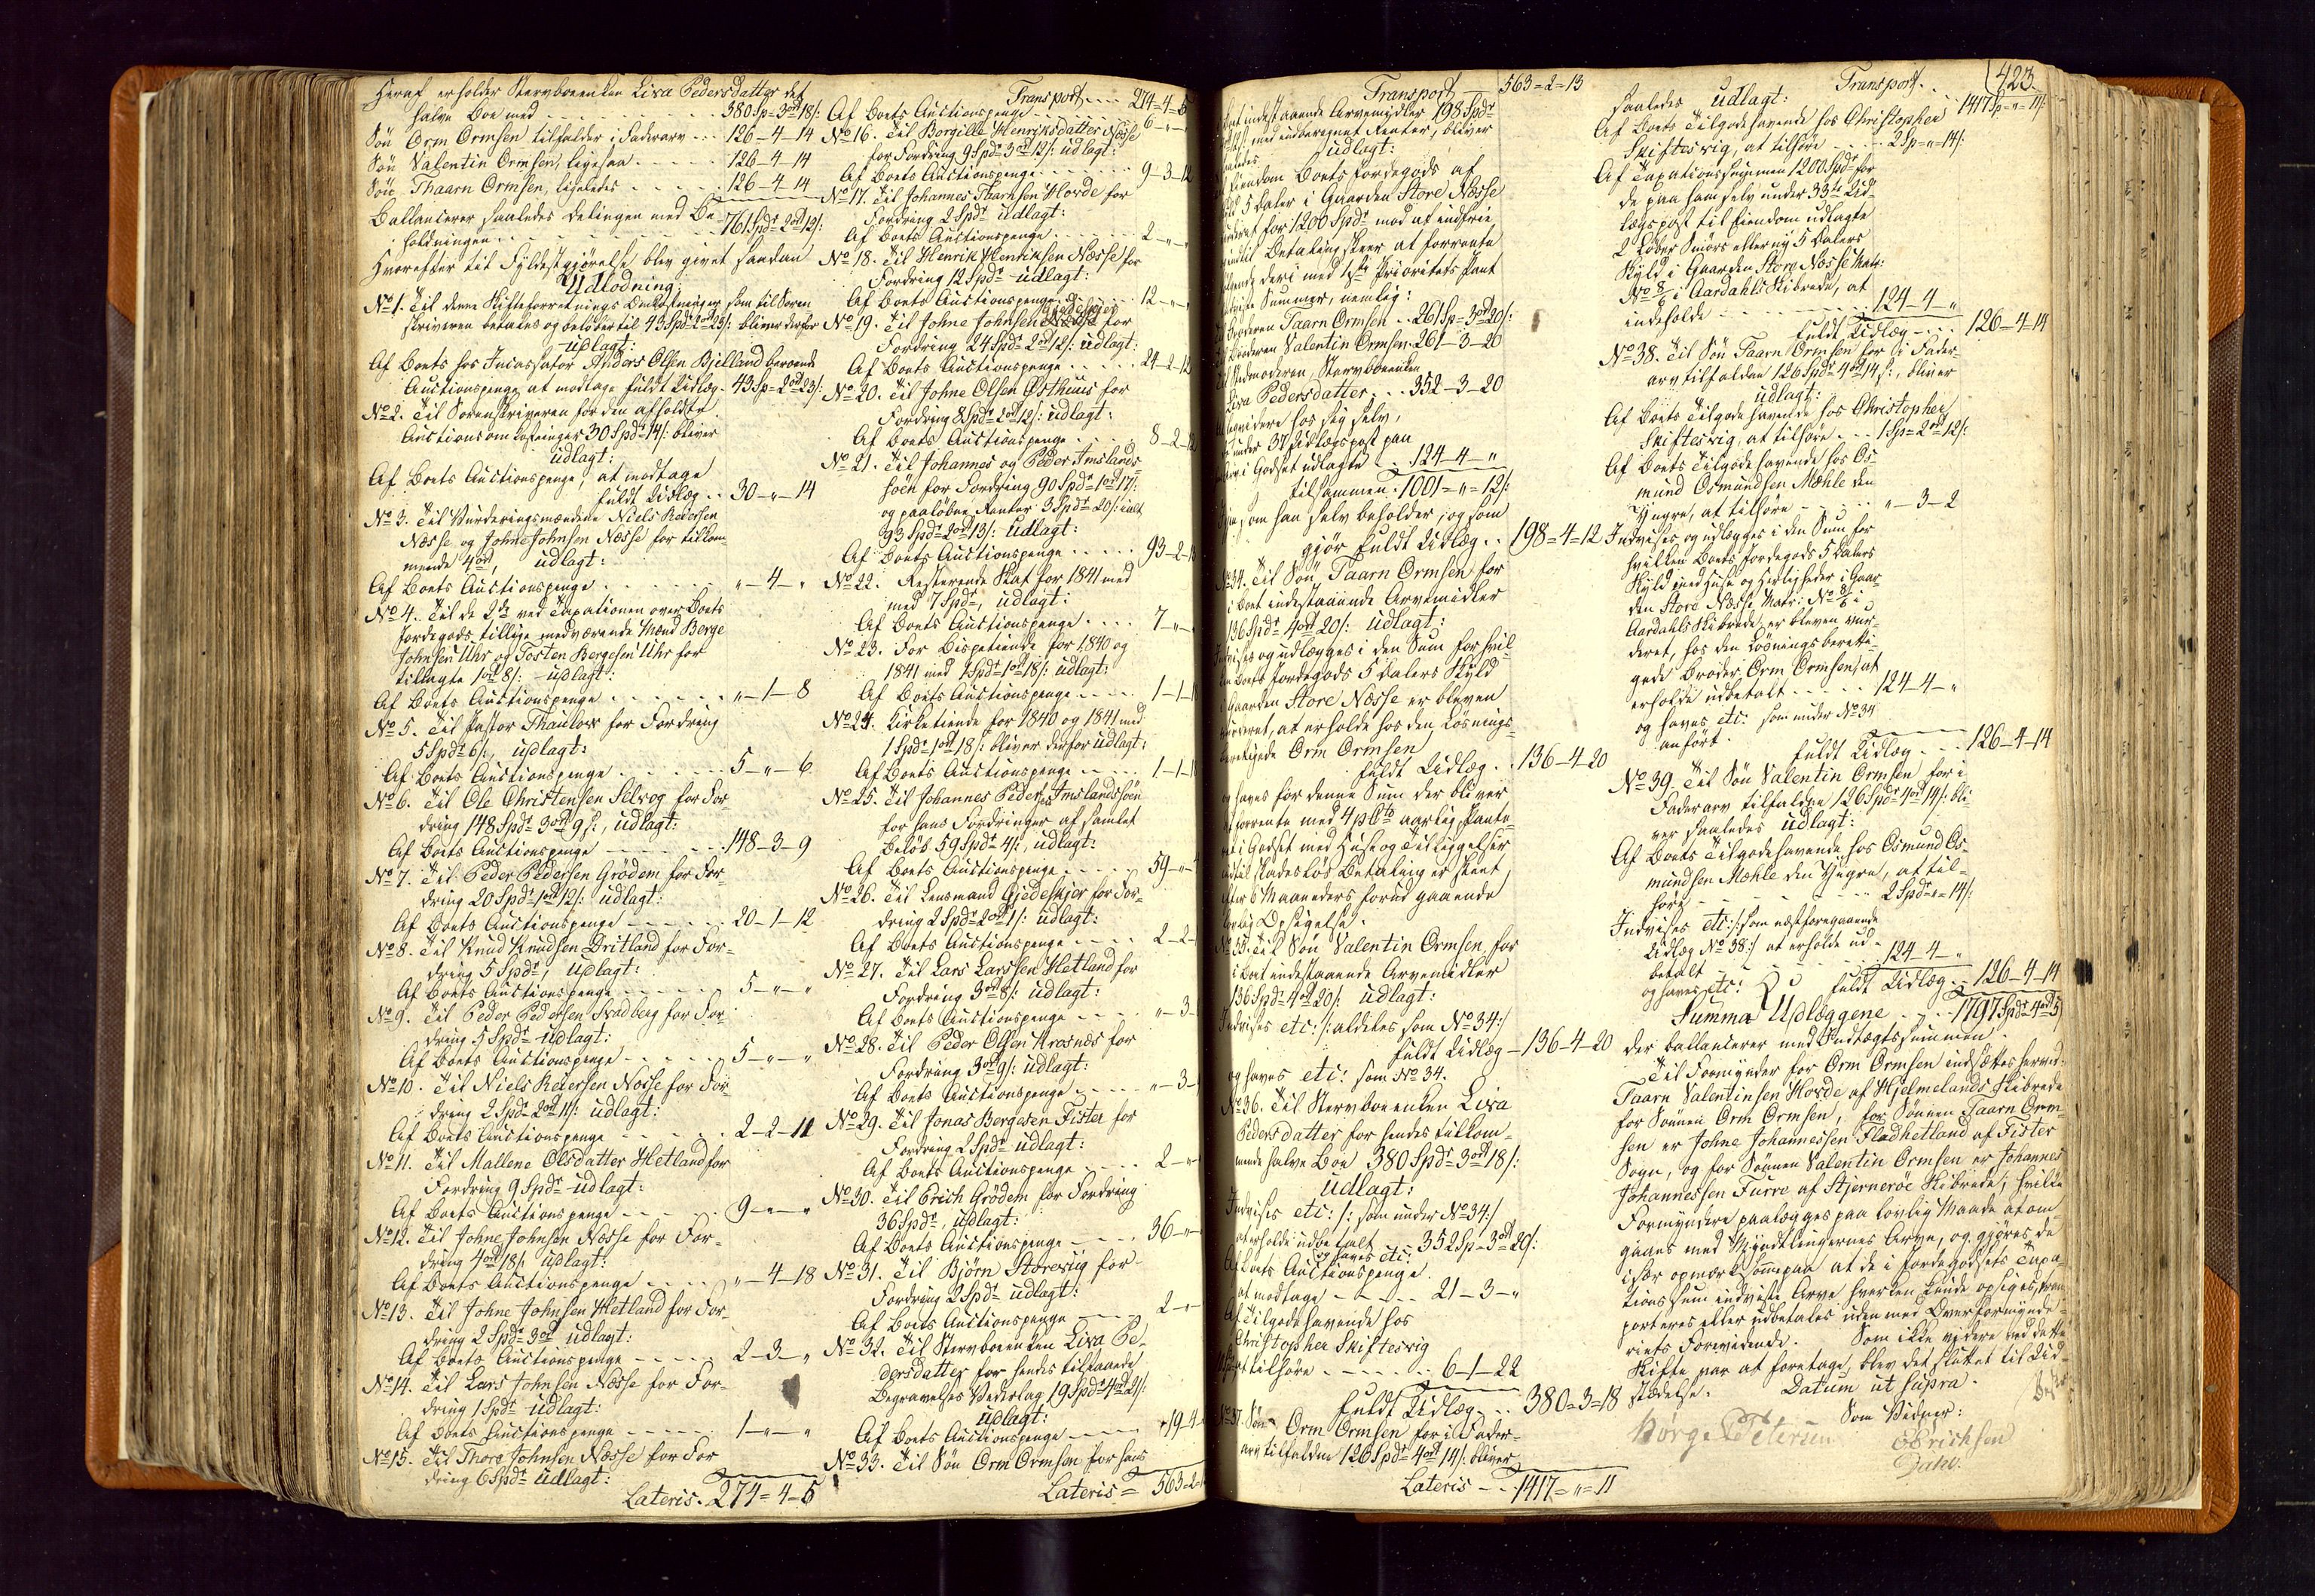 Heraf erholder Stervboeenken Lisa Pedersdatter det
halve Boe med 380 Sp - 3 ort 18 s:
Søn Orm Ormsen tilfalder i Faderarv 126-4-14
Søn Valentin Ormsen, ligesaa 126-4-14
Søn Thaarn Ormsen, ligeledes 126-4-14
Ballancerer saaledes Delingen med Be-
holdningen 761 Spd 2 ort 12 s:
Hvorefter til Fyldestgjørelse blev givet saadan
Udlodning:
No 1. Til denne Skifteforretnings Omkostninger som til Soren
skriveren betales og beløber til 43 Spd 2 ort 23 s: bliver derfor
udlagt:
Af Boets hos Incassator Anders Olsen Bjelland beroende
Auctionspenge at modtage fuldt Udlæg. 43 Sp = 2 ort 23 s:
No 2. Til Sorenskriveren for den afholdte
Auctions omkostninger 30 Spd 14 s: bliver
udlagt:
Af Boets Auctionspenge, at modtage
fuldt Udlæg 30-"-14
No 3. Til Vurderingsmændene Niels Pedersen
Næsse og Johne Johnsen Næsse for tilkom-
mende 4 ort, udlagt:
Af Boets Auctionspenge "-4-"
No 4. Til de 2de ved Taxationen over Boets
Jordegods tillige medværende Mænd Berge
Johnsen Uhr og Tosten Bergesen Uhr for
tillagte 1 ort 8 s: udlagt:
Af Boets Auctionspenge "-1-8
No 5. Til Pastor Thaulow for Fordring
5 Spd 6 s:, udlagt:
Af Boets Auctionspenge 5-"-6
No 6. Til Ole Christensen Selvog for For-
dring 148 Spd 3 ort 9 s:, udlagt:
Af Boets Auctionspenge 148-3-9
No 7. Til Peder Pedersen Grødem for For-
dring 20 Spd 1 ort 12 s: udlagt:
Af Boets Auctionspenge 20-1-12
No 8. Til Knud Knudsen Dritland for For-
dring 5 Spd, udlagt:
Af Boets Auctionspenge 5-"-"
No 9. Til Peder Pedersen Svadberg for For-
dring 5 Spd udlagt:
Af Boets Auctionspenge 5-"-"
No 10. Til Niels Pedersen Næsse for For-
dring 2 Spd 2 ort 11 s: udlagt:
Af Boets Auctionspenge 2-2-11
No 11. Til Mallene Olsdatter Hetland for
Fordring 9 Spd udlagt:
Af Boets Auctionspenge 9-"-"
No 12. Til Johne Johnsen Næsse for For-
dring 4 ort 18 s: udlagt:
Af Boets Auctionspenge "-4-18
No 13. Til Johne Johnsen Hetland for For-
dring 2 Spd 3 ort udlagt:
Af Boets Auctionspenge 2-3-"
No 14. Til Lars Johnsen Næsse for For-
dring 1 Spd udlagt:
Af Boets Auctionspenge 1-"-"
No 15. Til Thore Johnsen Næsse for For
dring 6 Spd udlagt:
Lateris. 274=4=5
Transport 274=4=5
Af Boets Auctionspenge 6-"-"
No 16. Til Borgille Henriksdatter Næsse
for Fordring 9 Spd 3 ort 12 s: udlagt:
Af Boets Auctionspenge 9-3-12
No 17. Til Johannes Thaarnsen Hovde for
Fordring 2 Spd udlagt:
Af Boets Auctionspenge 2-"-
No 18. Til Henrik Henriksen Næsse for
Fordring 12 Spd udlagt:
Af Boets Auctionspenge 12-"-
No 19. Til Johne Johnsen for
Fordring 24 Spd 2 ort 12 s: udlagt:
Af Boets Auctionspenge 24-2-12
No 20. Til Johne Olsen Østhuus for
Fordring 8 Spd 2 ort 12 s: udlagt:
Af Boets Auctionspenge 8-2-12
No 21. Til Johannes og Peder Imslands-
søen for Fordring 90 Spd 1 ort 17 s:
og paaløbne Renter 3 Spd 20 s: ialt
93 Spd 2 ort 13 s: udlagt:
Af Boets Auctionspenge 93-2-13
No 22. Resterende Skat for 1841 med
med 7 Spd, udlagt:
Af Boets Auctionspenge 7-"-
No 23. For Bispetiende for 1840 og
1841 med 1 Spd 1 ort 18 s: udlagt:
Af Boets Auctionspenge 1-1-1
No 24. Kirketiende for 1840 og 1841 med
1 Spd 1 ort 18 s: bliver derfor udlagt:
Af Boets Auctionspenge 1-1-1
No 25. Til Johannes Pedersen Imslandssøen
for hans Fordringer af samlet
Beløb 59 Spd 4 s:, udlagt:
Af Boets Auctionspenge 59-"-4
No 26. Til Lensmand Gjedeskjer for For-
dring 2 Spd 2 ort 1 s: udlagt:
Af Boets Auctionspenge 2-2-
No 27. Til Lars Larssen Hetland for
Fordring 3 ort 8 s: udlagt:
Af Boets Auctionspenge "-3-
No 28. Til Peder Olsen Krosnæs for
Fordring 3 ort 9 s: udlagt:
Af Boets Auctionspenge "-3-
No 29. Til Jonas Bergesen Fister for
Fordring 2 Spd udlagt:
Af Boets Auctionspenge 2-"-
No 30. Til Erich Grødem for Fordring
36 Spd, udlagt:
Af Boets Auctionspenge 36-"-
No 31. Til Bjørn Storevig for
Fordring 2 Spd udlagt:
Af Boets Auctionspenge 2-"-
No 32. Til Stervboeenken Lisa Pe-
dersdatter for hendes tilstaaede
Begravelses Vederlag 19 Spd 4 ort 21 s:
udlagt:
Af Boets Auctionspenge 19-4-
No 33. Til Søn Orm Ormsen for hans
Lateris = 563=2=
Transport 563=2=13
Boet indestaaende Arvemidler 198 Spd
med indberegnet Renter, bliver
saaledes udlagt:
Eiendom Boets Jordegods af
5 Daler i Gaarden Store Næsse
vurderet for 1200 Spd mod at indfrie
indtil Betaling skeer at forrente
deri med 1ste Prioritets Pant
Summer, nemlig:
Broderen Taarn Ormsen 261 Sp = 3 ort 20 s:
Broderen Valentin Ormsen 261-3-20
Stedmoderen, Stervboeenken
Lisa Pedersdatter 352-3-20
hos sig selv,
under 37 Udlægspost paa
i Godset udlagte 124-4-"
tilsammen 1001="=12 s:
som han selv beholder, og som
gjør fuldt Udlæg 198=4=12
No 34. Til Søn Taarn Ormsen for
i Boet indestaaende Arvemidler
136 Spd 4 ort 20 s: udlagt:
Indvises og udlægges i den Sum for hvil-
ken Boets Jordegods 5 Dalers Skyld
i Gaarden Store Næsse er bleven
vurderet, at erholde hos den Løsnings-
berettigede Orm Ormsen
fuldt Udlæg 136-4-20
og haves for denne Sum der bliver
at forrente med 4 pCto aarlig, Pante-
ret i Godset med Huse og Tilliggelser
indtil skadesløs Betaling er skeet
efter 6 Maaneders forud gaaende
lovlig Opsigelse.
No 35. Til Søn Valentin Ormsen for
i Boet indestaaende Arvemidler
136 Spd 4 ort 20 s: udlagt:
Indvises etc: /: aldeles som No 34 :/
fuldt Udlæg 136-4-20
og haves etc: som No 34.
No 36. Til Stervboeenken Lisa
Pedersdatter for hendes tilkom-
mende halve Boe 380 Spd 3 ort 18 s:
udlagt:
Indvises etc: /: som under No 34 :/
at erholde udbetalt 352 Sp = 3 ort 20 s:
og haves etc:
Af Boets Auctionspenge
at modtage 21-3-"
Af Tilgodehavende hos
Christopher Skiftesvig
at tilføre 6-1-22
fuldt Udlæg 380=3=18
No 37. Søn Orm Ormsen for i Fader-
arv tilfaldne 126 Spd 4 ort 14 s: bliver
Lateris 1417="=11
423
Transport 1417 Sp="=11 s:
saaledes udlagt:
Af Boets Tilgodehavende hos Christopher
Skiftesvig, at tilføre 2 Sp="=14 s:
Af Taxationssummen 1200 Spd for
de paa ham selv under 33te Ud-
lægspost til Eiendom udlagte
2 Løber Smørs eller ny 5 Dalers
Skyld i Gaarden Store Næsse Matr:
No 8/6 i Aardahls Skibrede, at
indeholde 124-4-"
fuldt Udlæg 126-4-14
No 38. Til Søn Taarn Ormsen for i Fader-
arv tilfaldne 126 Spd 4 ort 14 s:, bliver
udlagt:
Af Boets Tilgodehavende hos Christopher
Skiftesvig, at tilføre 1 Sp=2 ort 12 s:
Af Boets Tilgodehavende hos Os-
mund Osmundsen Mæhle den
Yngre, at tilføre "-3-2
Indvises og udlægges i den Sum for
hvilken Boets Jordegods 5 Dalers
Skyld med Huse og Herligheder i Gaar-
den Store Næsse Matr: No 8/6 i
Aardahls Skibrede er bleven vur-
deret, hos den Løsnings beretti-
gede Broder Orm Ormsen, at
erholde udbetalt 124-4-"
og haves etc: som under No 34
anført.
fuldt Udlæg 126-4-14
No 39. Til Søn Valentin Ormsen for i
Faderarv tilfaldne 126 Spd 4 ort 14 s: bli-
ver saaledes udlagt:
Af Boets Tilgodehavende hos Osmund Os-
mundsen Mæhle den Yngre, at til-
føre 2 Spd="=14 s:
Indvises etc: /: som næstforegaaende
Udlæg No 38 :/ at erholde ud-
betalt 124-4-"
og haves etc: fuldt Udlæg 126-4-14
Summa Udlæggene 1797 Spd 4 ort 5
der ballancerer med Indtægtssummen.
Til Formynder for Orm Ormsen indsættes herved:
Taarn Valentinsen Hovde af Hjelmelands Skibrede
for Sønnen Orm Ormsen, for Sønnen Taarn Orm-
sen er Johne Johannessen Fladhetland af Fister
Sogn, og for Sønnen Valentin Ormsen er Johannes
Johannessen Furre af Stjernerøe Skibrede, hvilke
Formyndere paalægges paa lovlig Maade at om-
gaaes med Myndtlingernes Arve, og gjøres de
især opmærksomme paa at de i Jordegodsets Taxa-
tionssum indviste Arve hverken kunde opsiges, trans-
porteres eller udbetales uden med Overformynde-
riets Forevidende. Som ikke videre ved dette
Skifte var at foretage, blev det sluttet til Ud-
stædelse. Datum ut supra.
Som Vidner:
Børge Petersen
E Erichsen
Dahl.